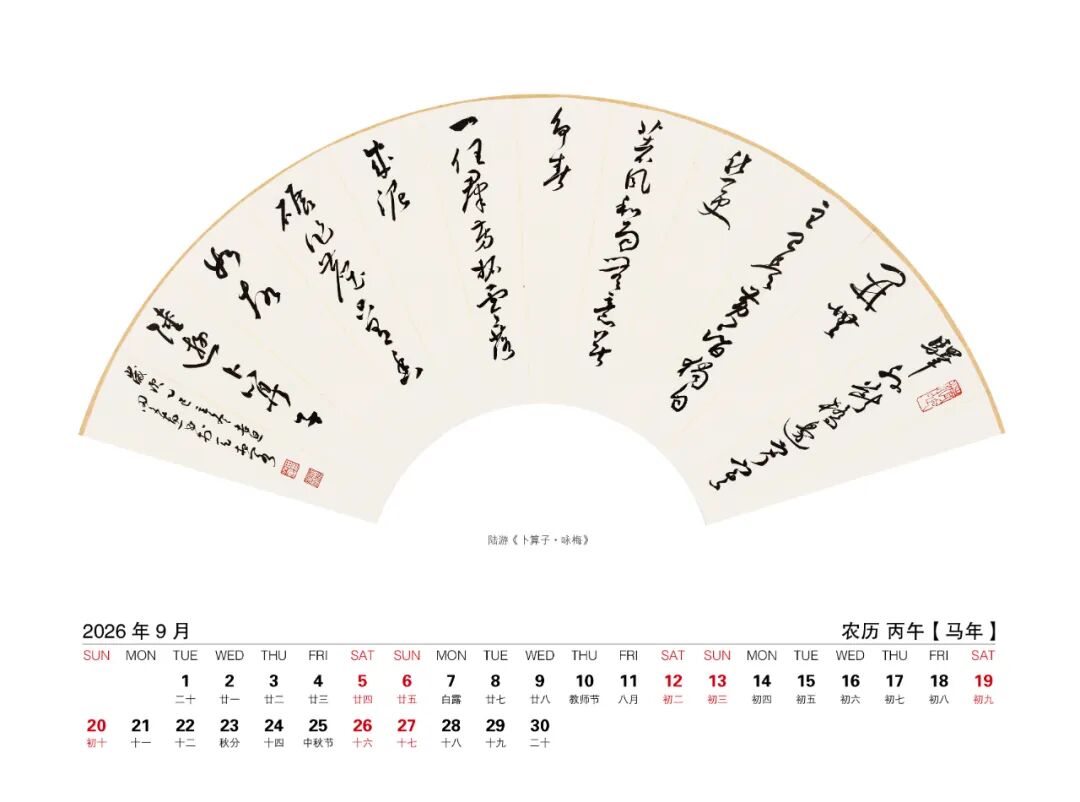 驿外断桥边寂寞
开无
主已是黄昏独自
愁更
著风和雨无意苦
争春
一任群芳妒零落
成泥
碾作尘只有香
如故
陆游卜算子
岁次乙巳
陆游《卜算子·咏梅》
2026 年 9 月
农历 丙午【马年】
SUN MON TUE WED THU FRI SAT SUN MON TUE WED THU FRI SAT SUN MON TUE WED THU FRI SAT
1 2 3 4 5 6 7 8 9 10 11 12 13 14 15 16 17 18 19
二十 廿一 廿二 廿三 廿四 廿五 白露 廿七 廿八 教师节 八月 初二 初三 初四 初五 初六 初七 初八 初九
20 21 22 23 24 25 26 27 28 29 30
初十 十一 十二 秋分 十四 中秋节 十六 十七 十八 十九 二十